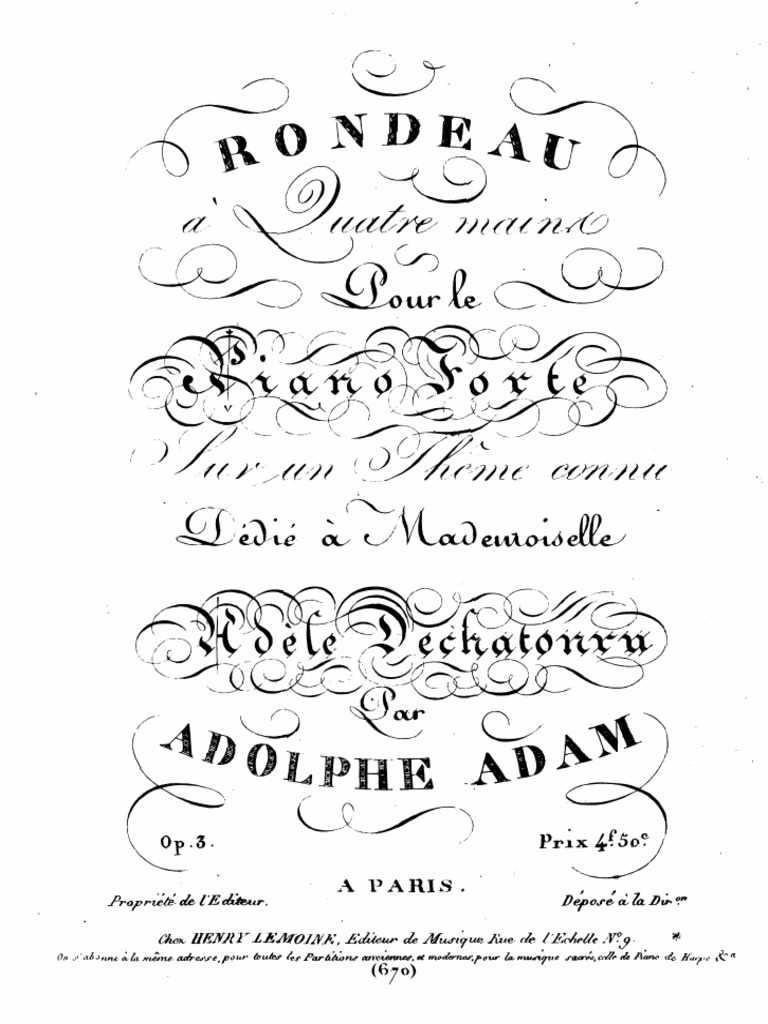 RONDEAU
à Quatre mains
Pour le
Piano Forté
Sur un Thême connu
Dédié à Mademoiselle
Adèle Dechatonru
Par
ADOLPHE ADAM
Op. 3.
Prix 4f. 50c.
A PARIS.
Propriété de l'Editeur.
Déposé à la Dir.on
Chez HENRY LEMOINE, Editeur de Musique Rue de l'Echelle No. 9.
On s'abonne à la même adresse, pour toutes les Partitions anciennes, et modernes, pour la musique sacrée, celle de Piano de Harpe &a
(670)